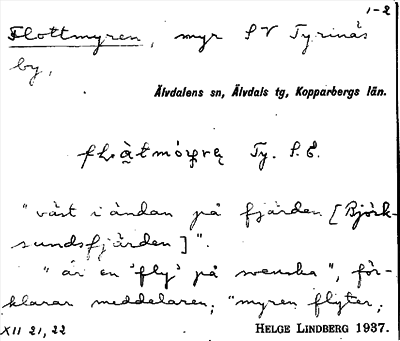 1-2
Flottmyren, myr SV Tyrinäs
by,
Älvdalens sn, Älvdals tg, Kopparbergs län.
Ty. S. E.
"väst i ändan på fjärden [Björk-
sundsfjärden]".
"är en 'fly' på svenska", för-
klarar meddelaren; "myren flyter,
XII 21, 22 HELGE LINDBERG 1937.